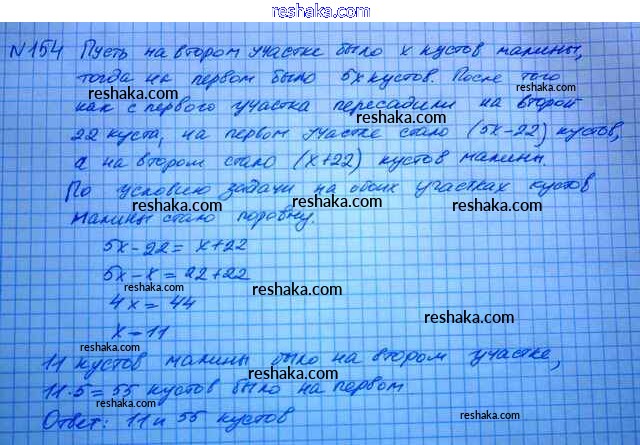 reshaka.com
№154 Пусть на втором участке было x кустов малины,
тогда на первом было 5x кустов. После того
как с первого участка пересадили на второй
22 куста, на первом участке стало (5x-22) кустов,
а на втором стало (x+22) кустов малины.
По условию задачи на обоих участках кустов
малины стало поровну.
5x-22=x+22
5x-x=22+22
4x=44
x=11
11 кустов малины было на втором участке,
11·5=55 кустов было на первом
Ответ: 11 и 55 кустов
reshaka.com